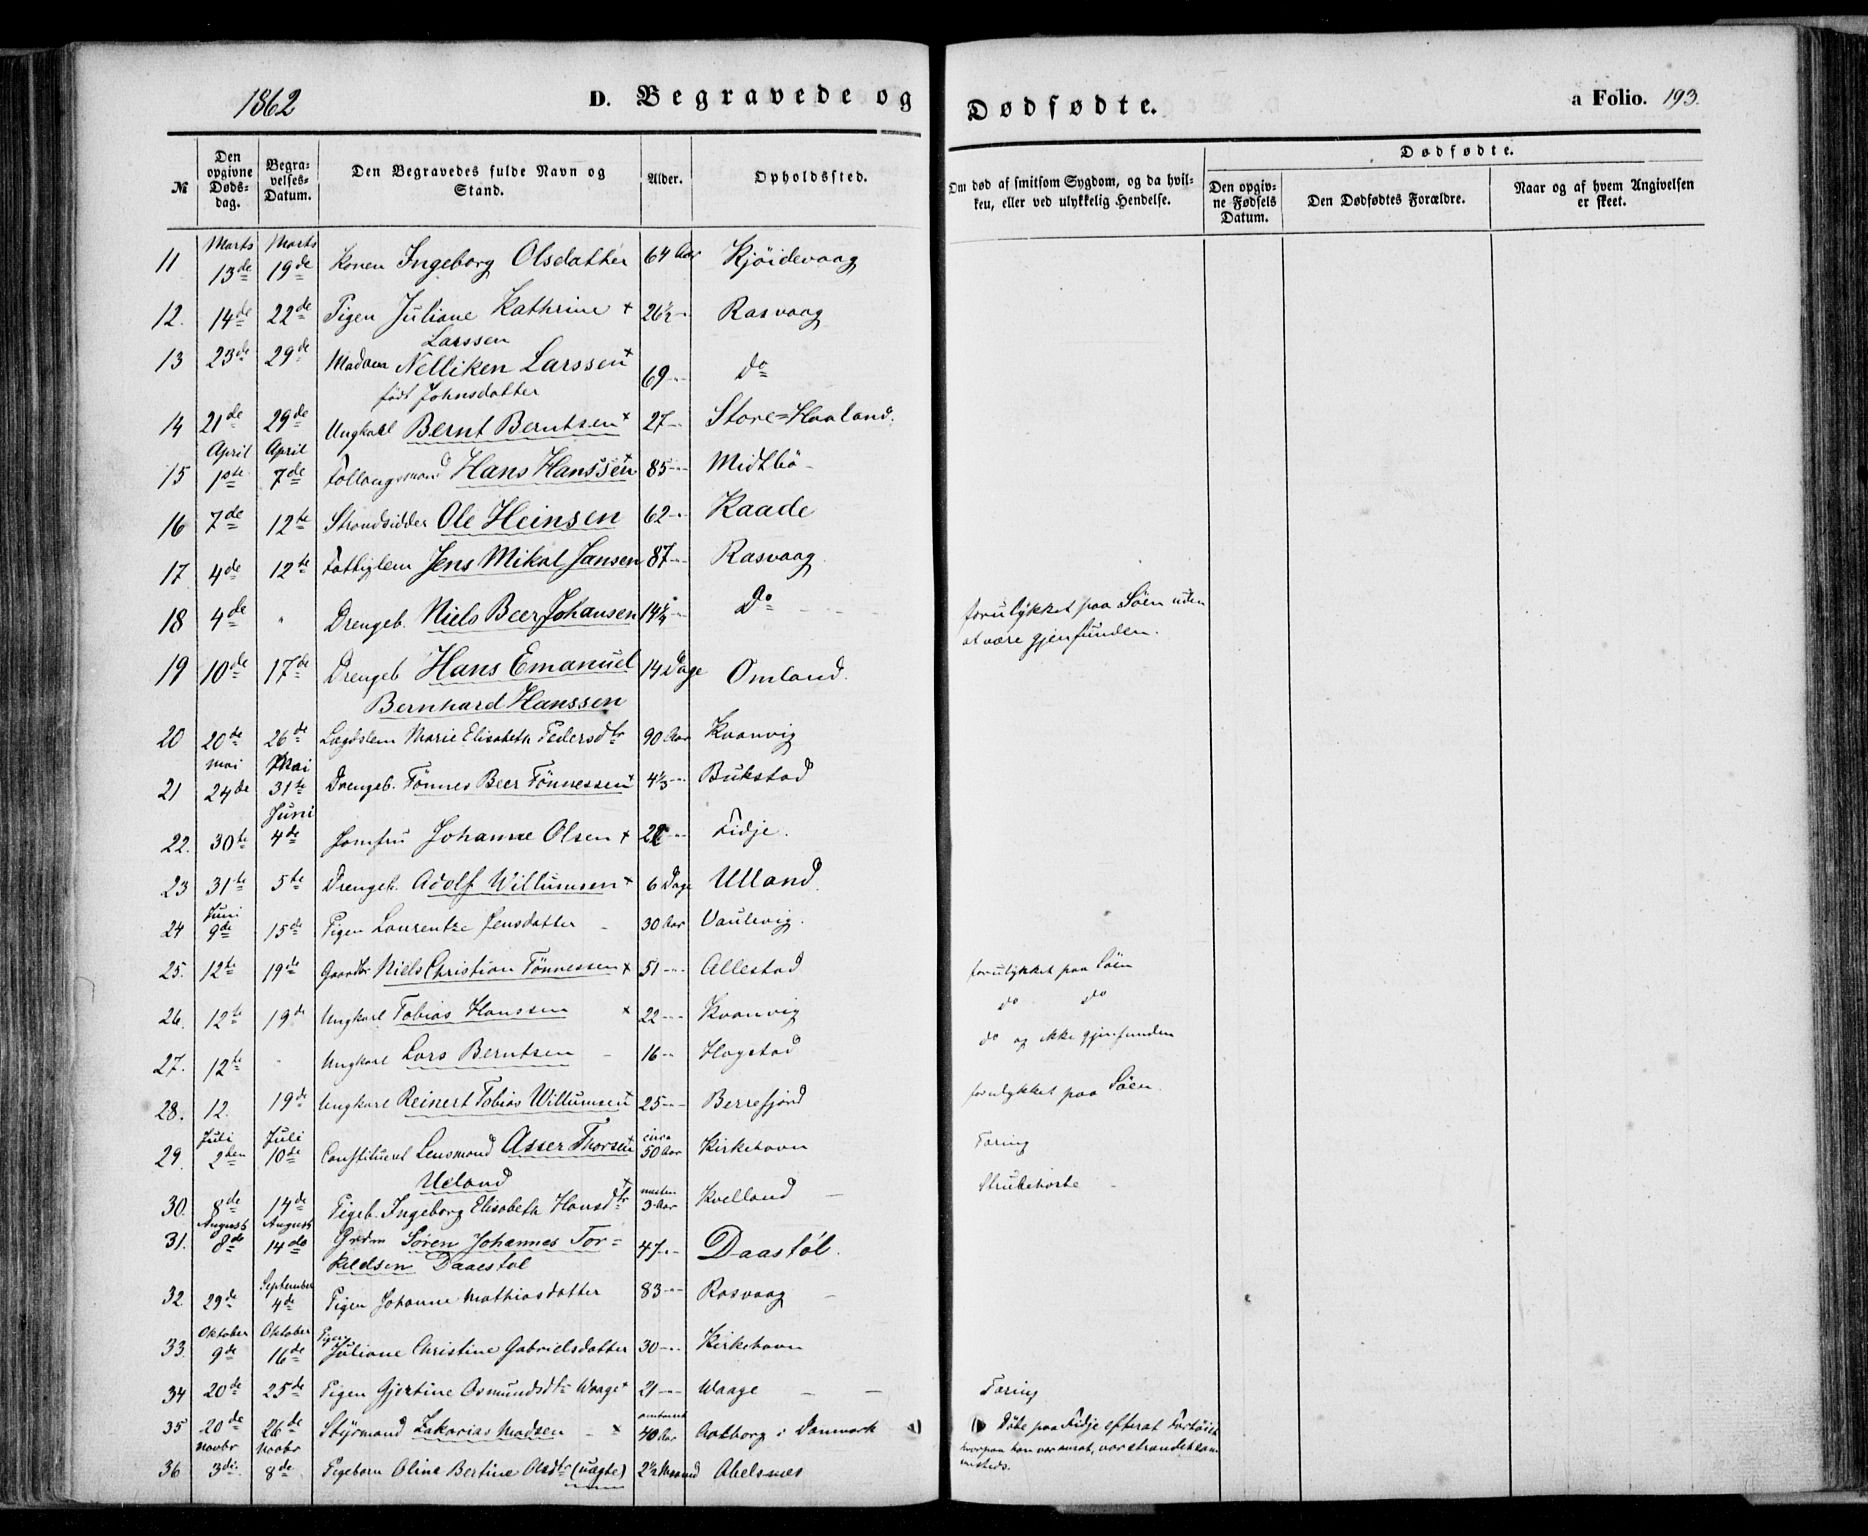 1862 D. Begravede og Dødfødte. a Folio. 193.
№ Den opgivne Døds-dag. Begra-velses-Datum. Den Begravedes fulde Navn og Stand. Alder. Opholdssted. Om død af smitsom Sygdom, og da hvil-ken, eller ved ulykkelig Hendelse. Dødfødte. Den opgiv-ne Fødsels Datum. Den Dødfødtes Forældre. Naar og af hvem Angivelsen er skeet.
Marts Marts
11 13de 19de Konen Ingeborg Olsdatter 64 Aar Kjöidevaag
12. 14de 22de Pigen Juliane Kathrine + 26½ Rasvaag
Larssen
13 23de 29de Madam Nelliken Larssen + 69 do
født Johnsdatter
14 21de 29de Ungkarl Bernt Berntsen + 27 Store=Haaland.
April April
15 1ste 7de Follaugsmand Hans Hanssen + 85 Midtbö
16 7de 12te Strandsidder Ole Heinsen 62 Raade
17 4de 12te Fattiglem Jens Mikal Jansen 87 Rasvaag
18 4de " Drengeb. Niels Beer Johansen 14½ Do forulykket paa Söen uden
at være gjenfunden.
19 10de 17de Drengeb Hans Emanuel 14 Dage Omland.
Bernhard Hanssen
20 20de 26de Lægdslem Marie Elisabeth Pedersdtr 90 Aar Kvanvig
Mai Mai
21 24de 31te Drengeb. Tönnes Beer Tönnessen + 4⅓ Bukstad
Juni
22. 30te 4de Jomfru Johanne Olsen + Fidje.
23 31te 5te Drengeb. Adolf Willumsen + 6 Dage Ulland.
Juni
24 9de 15de Pigen Laurentze Jensdatter 30 Aar Vaulevig.
25. 12te 19de Gaardbr Niels Christian Tönnessen + 51 Allestad forulykket paa Söen
26. 12te 19de Ungkarl Tobias Hanssen + 22 Kvanvig do do
27. 12te Ungkarl Lars Berntsen 16 Hagstad do og ikke gjenfunden
28. 12. 19de Ungkarl Reinert Tobias Willumsen 25 Berrefjord forulykket paa Söen.
Juli Juli
29. 2den 10de Constitueret Lensmand Asser Thorsen circa 50 Aar Kirkehavn Tæring
Ueland
30. 8de 14de Pigeb. Ingeborg Elisabeth Hansdtr + næsten 3 Aar Kvelland Strubehoste
August August
31. 8de 14de Grdm Sören Johannes Tor= 47 Daastöl.
keldsen Daaestöl
September
32. 29de 4de Pigen Johanne Mathiasdatter 83 Rasvaag
Oktober Oktober
33. 9de 16de Pigen Juliane Christine Gabrielsdatter 30 Kirkehavn
34 20de 25de Pigen Gjertine Asmundsdtr Waage + 21 Waage Tæring
35 20de 26de Styrmand Zakarias Madsen + omtrent 40 Aar Aalborg i Danmark Döde paa Fidje efterat Fartöiet
hvorpaa han var ansat, var strandet sam=
Novbr Novbr
36 3die 8de Pigebarn Oline Bertine Olsdtr (uægte) 2½ Maaned Abelsnæs mesteds.